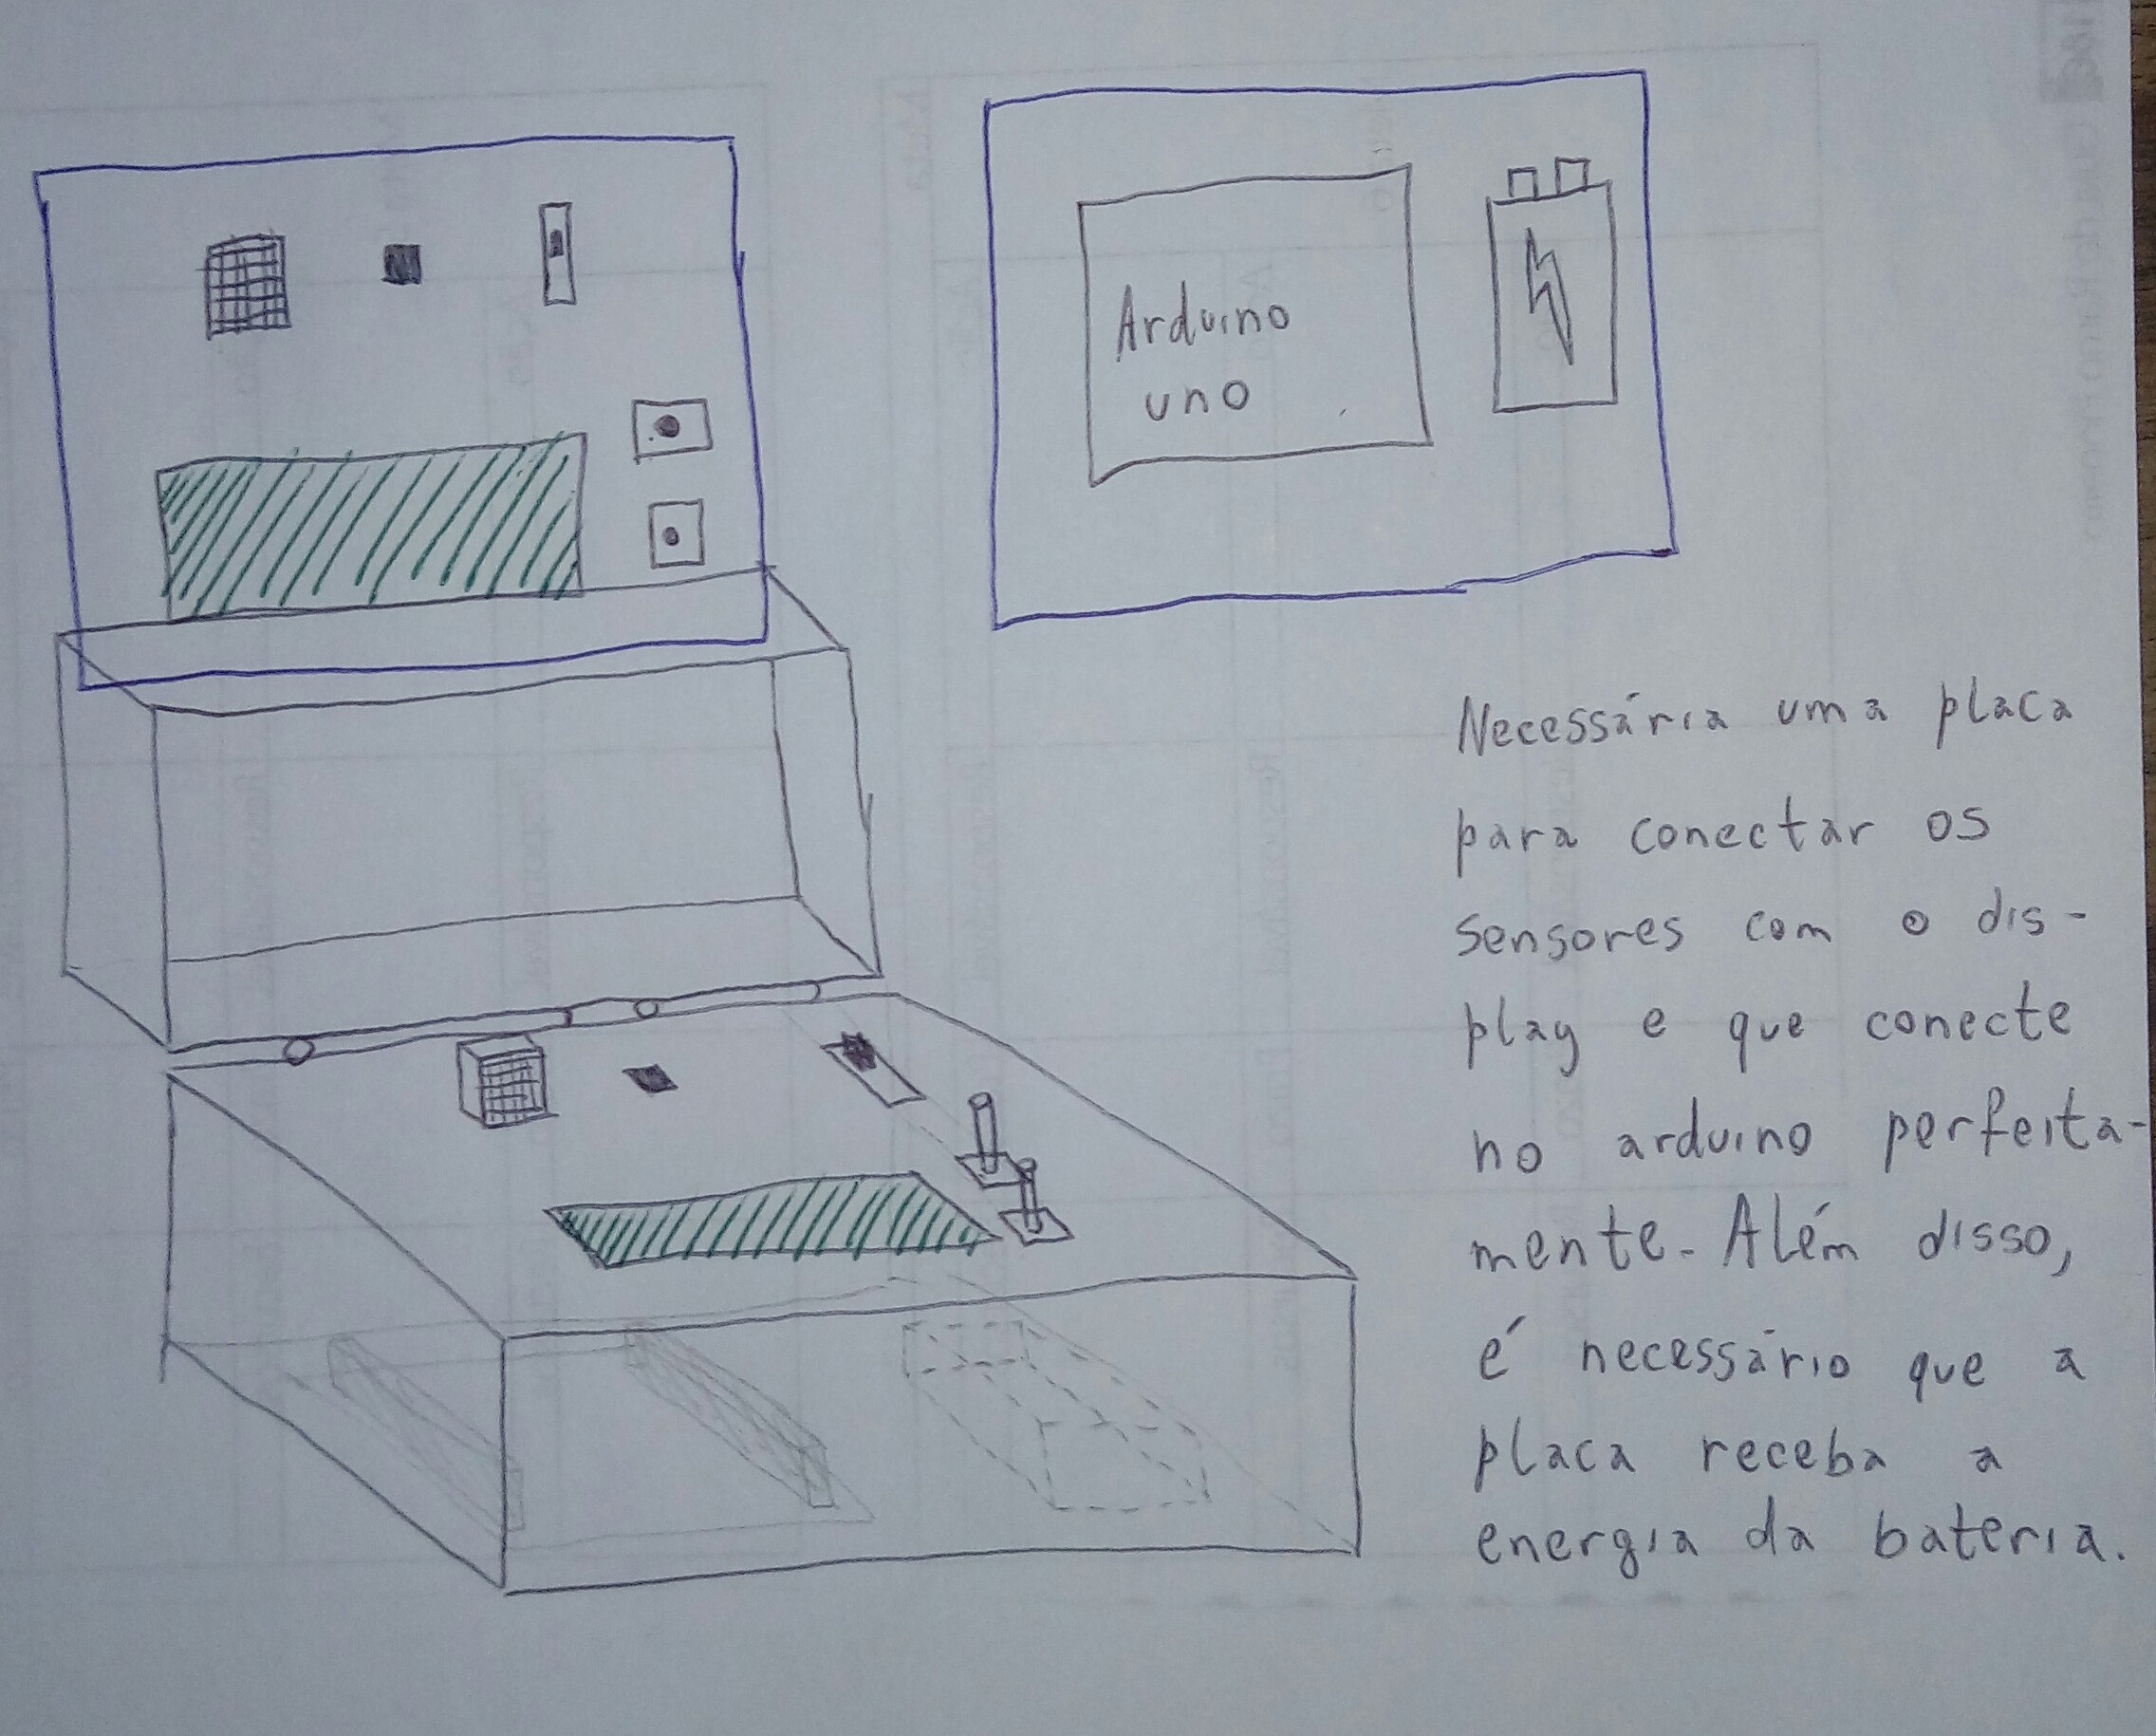 Arduino
uno
Necessária uma placa
para conectar os
sensores com o dis-
play e que conecte
no arduino perfeita-
mente. Além disso,
é necessário que a
placa receba a
energia da bateria.